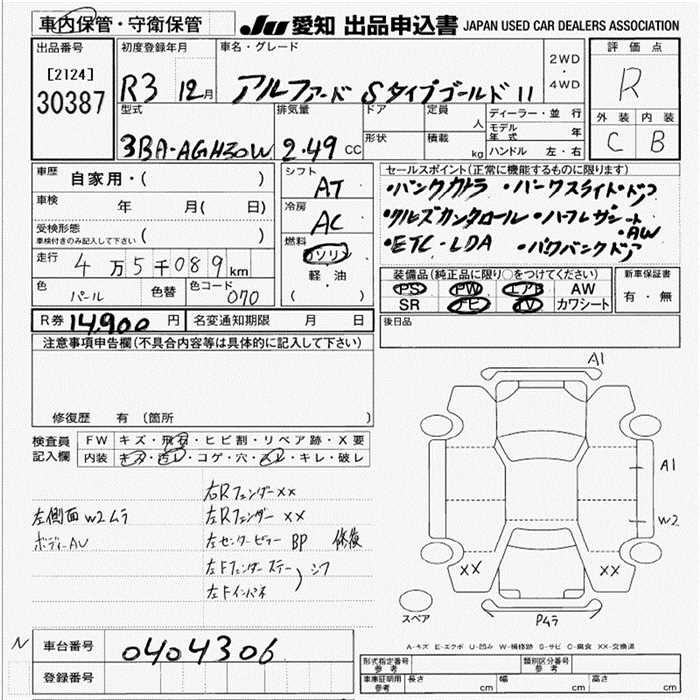 車内保管・守衛保管
JU 愛知 出品申込書 JAPAN USED CAR DEALERS ASSOCIATION
出品番号
[2124]
30387
初度登録年月
R3 12月
車名・グレード
アルファード Sタイプゴールド II
2WD
・
4WD
評価点
R
外装 内装
C B
型式
3BA-AGH30W
排気量
2.49 CC
ドア
形状
定員
人
積載
kg
ディーラー・並 行
モデル年式 年
ハンドル 左・右
車歴
自家用・( )
車検 年 月( 日)
受検形態
車検付きのみ記入して下さい ( )
走行
4万5千089km
色
パール
色替
色コード
070
シフト
AT
冷房
AC
燃料
ガソリン
軽・油
( )
セールスポイント(正常に機能するものに限ります)
・パワースライドドア
・ハーフレザーシート
・AW
・ETC・LDA ・パワーバックドア
装備品(純正品に限り○をつけてください)
PS PW エアB AW
SR ナビ TV カワシート
新車保証書
有・無
後日品
R券 14,900円
名変通知期限 月 日
注意事項申告欄(不具合内容等は具体的に記入して下さい)
修復歴 有 (箇所 )
検査員
記入欄
FW キズ・飛石・ヒビ割・リペア跡・X要
内装 キズ・汚レ・コゲ・穴・スレ・キレ・破レ
左側面 W2ムラ
ボディーAU
右Rフェンダー XX
左Rフェンダー XX
左センターピラー BP 修復
左Fフェンダーステー
左Fインパネ
A1
A1
W2
XX
XX
Pムラ
スペア
A-キズ E-エクボ U-凹み W-補修跡 S-サビ C-腐食 XX-交換済
N
車台番号
0404306
登録番号
形式指定番号
参考
類別区分番号
参考
車庫証明用
参考
長さ cm
幅 cm
高さ cm